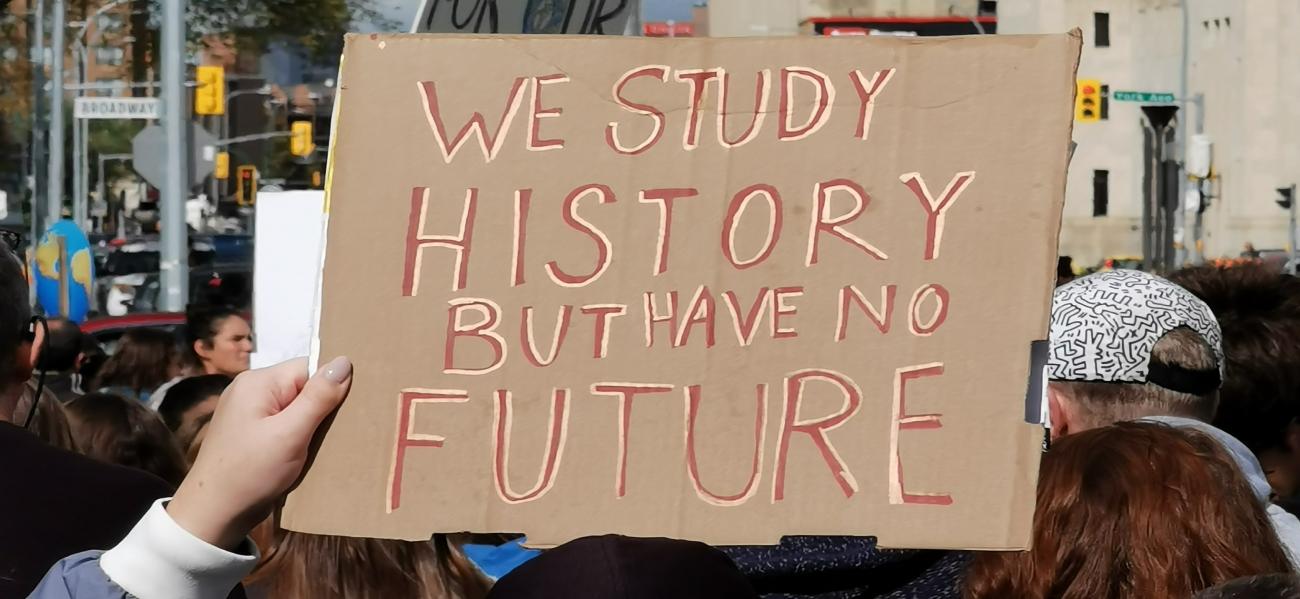 FOR OUR
BROADWAY
York Ave
WE STUDY
HISTORY
BUT HAVE NO
FUTURE